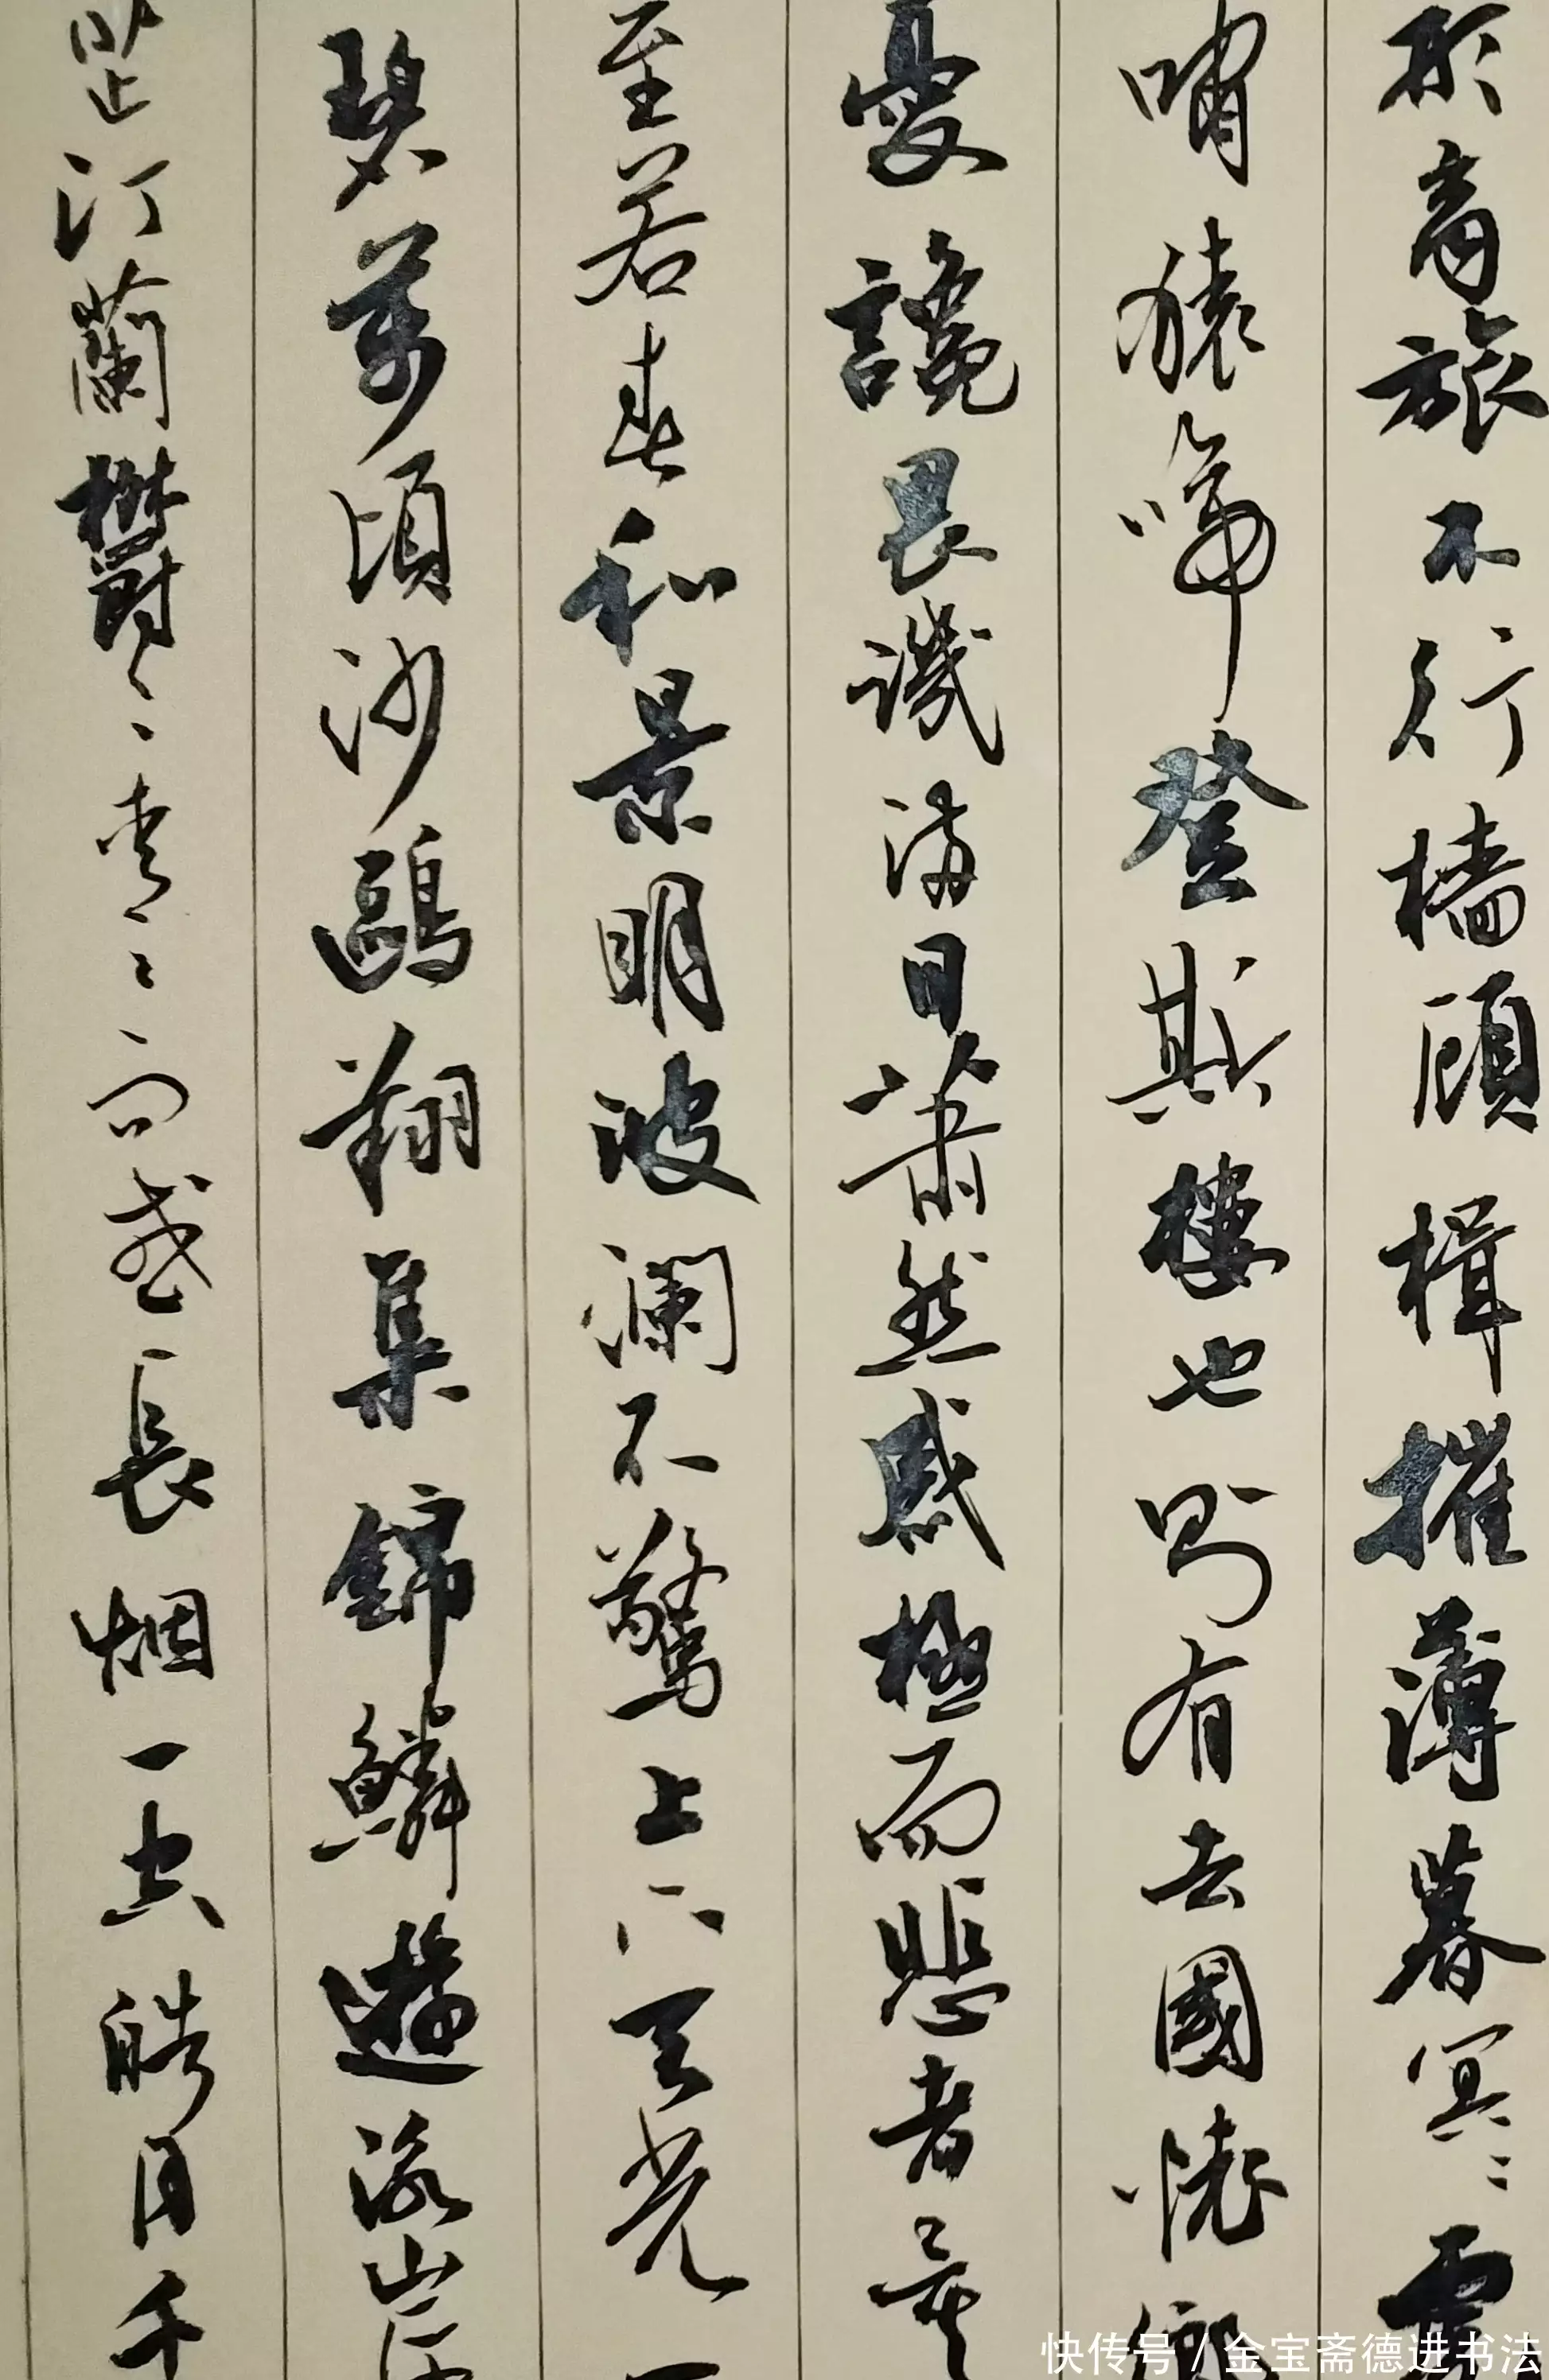 形商旅不行檣傾楫摧薄暮冥〻虎
嘯猿啼登斯樓也則有去國懷鄉
憂讒畏譏滿目蕭然感極而悲者矣
至若春和景明波瀾不驚上下天光一
碧萬頃沙鷗翔集錦鱗遊泳岸
芷汀蘭鬱〻青〻而或長烟一空皓月千
快传号 / 金宝斋德进书法